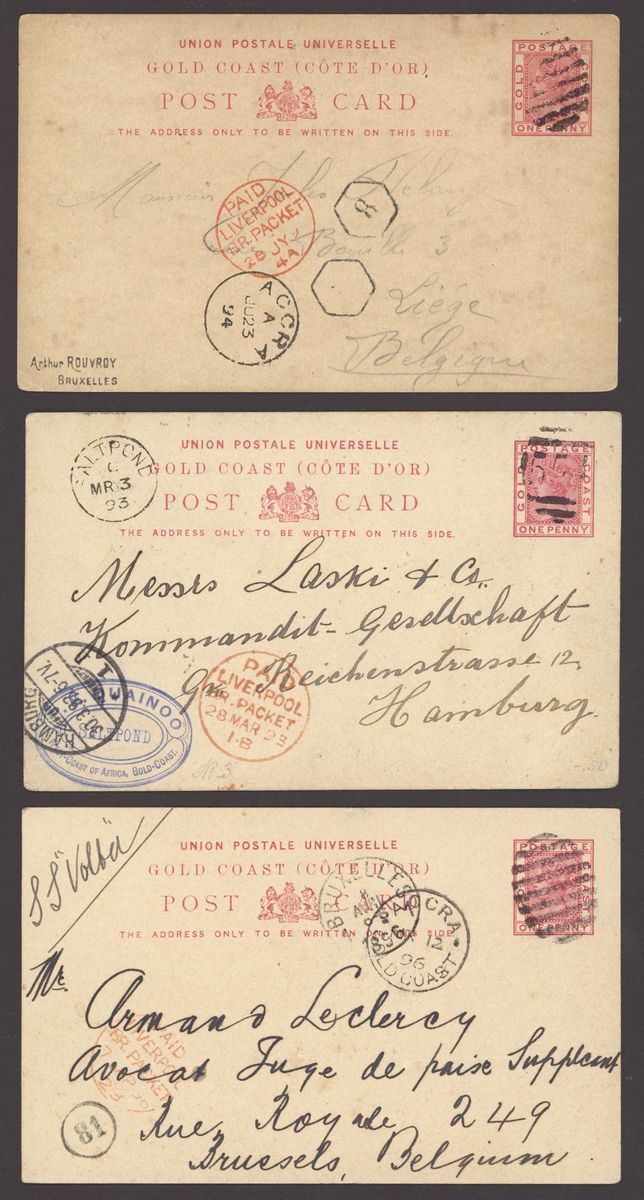 UNION POSTALE UNIVERSELLE
GOLD COAST (CÔTE D'OR)
POST CARD
THE ADDRESS ONLY TO BE WRITTEN ON THIS SIDE.
POSTAGE
GOLD
ONE PENNY
Monsieur Jules
3
Liége
Belgique
PAID
LIVERPOOL
BR. PACKET
28 JY
4A
8
ACCRA
A
JU 23
94
Arthur ROUVROY
BRUXELLES
SALTPOND
C
MR 3
93
UNION POSTALE UNIVERSELLE
GOLD COAST (CÔTE D'OR)
POST CARD
THE ADDRESS ONLY TO BE WRITTEN ON THIS SIDE.
POSTAGE
GOLD COAST
ONE PENNY
Messrs Laski & Co.
Kommandit-Gesellschaft
Gr. Reichenstrasse 12
Hamburg.
PAID
LIVERPOOL
BR. PACKET
28 MAR 93
1·B
HAMBURG
1
SALTPOND
COAST OF AFRICA, BOLD-COAST.
No 3
SS "Volta"
UNION POSTALE UNIVERSELLE
GOLD COAST (CÔTE D'OR)
POST CARD
THE ADDRESS ONLY TO BE WRITTEN ON THIS SIDE.
POSTAGE
ONE PENNY
BRUXELLES
ACCRA
12
96
GOLD COAST
Mr.
Armand Leclercy
Avocat Juge de paise Suppleant
Rue Royale 249
Brussels, Belgium
PAID
LIVERPOOL
BR. PACKET
81